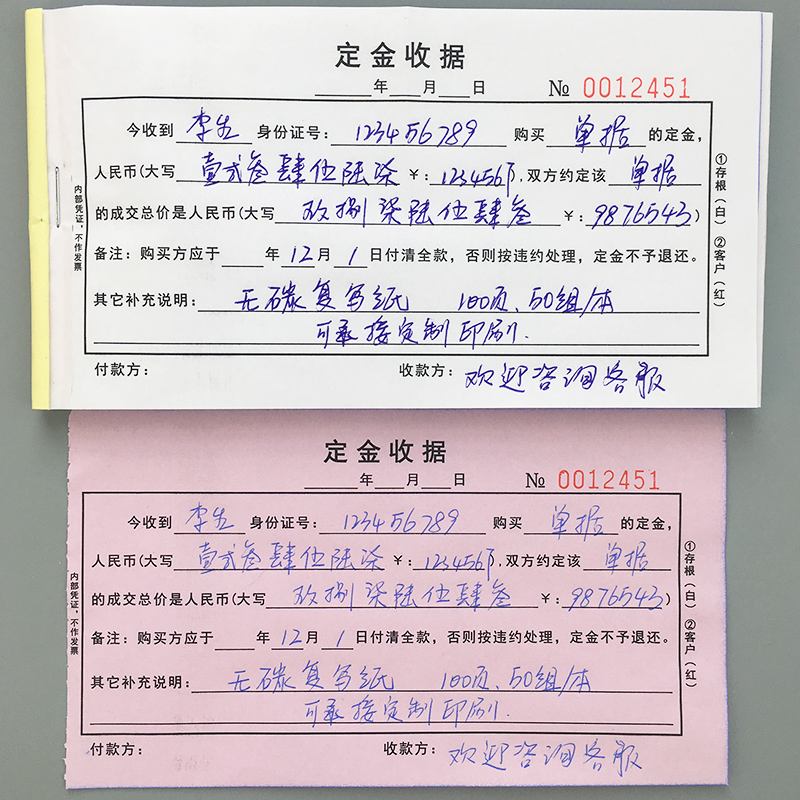 定金收据
年 月 日 № 0012451
今收到 李生 身份证号： 123456789 购买 单据 的定金，
人民币(大写 壹弍叁肆伍陆柒 ¥：1234567)，双方约定该 单据
的成交总价是人民币(大写 玖捌柒陆伍肆叁 ¥：9876543)
备注：购买方应于 年 12 月 1 日付清全款，否则按违约处理，定金不予退还。
其它补充说明： 无碳复写纸 100页、50组/本
可承接定制印刷.
付款方： 收款方： 欢迎咨询客服
内部凭证，不作发票
①存根（白）②客户（红）
定金收据
年 月 日 № 0012451
今收到 李生 身份证号： 123456789 购买 单据 的定金，
人民币(大写 壹弍叁肆伍陆柒 ¥：1234567)，双方约定该 单据
的成交总价是人民币(大写 玖捌柒陆伍肆叁 ¥：9876543)
备注：购买方应于 年 12 月 1 日付清全款，否则按违约处理，定金不予退还。
其它补充说明： 无碳复写纸 100页、50组/本
可承接定制印刷.
付款方： 收款方： 欢迎咨询客服
内部凭证，不作发票
①存根（白）②客户（红）